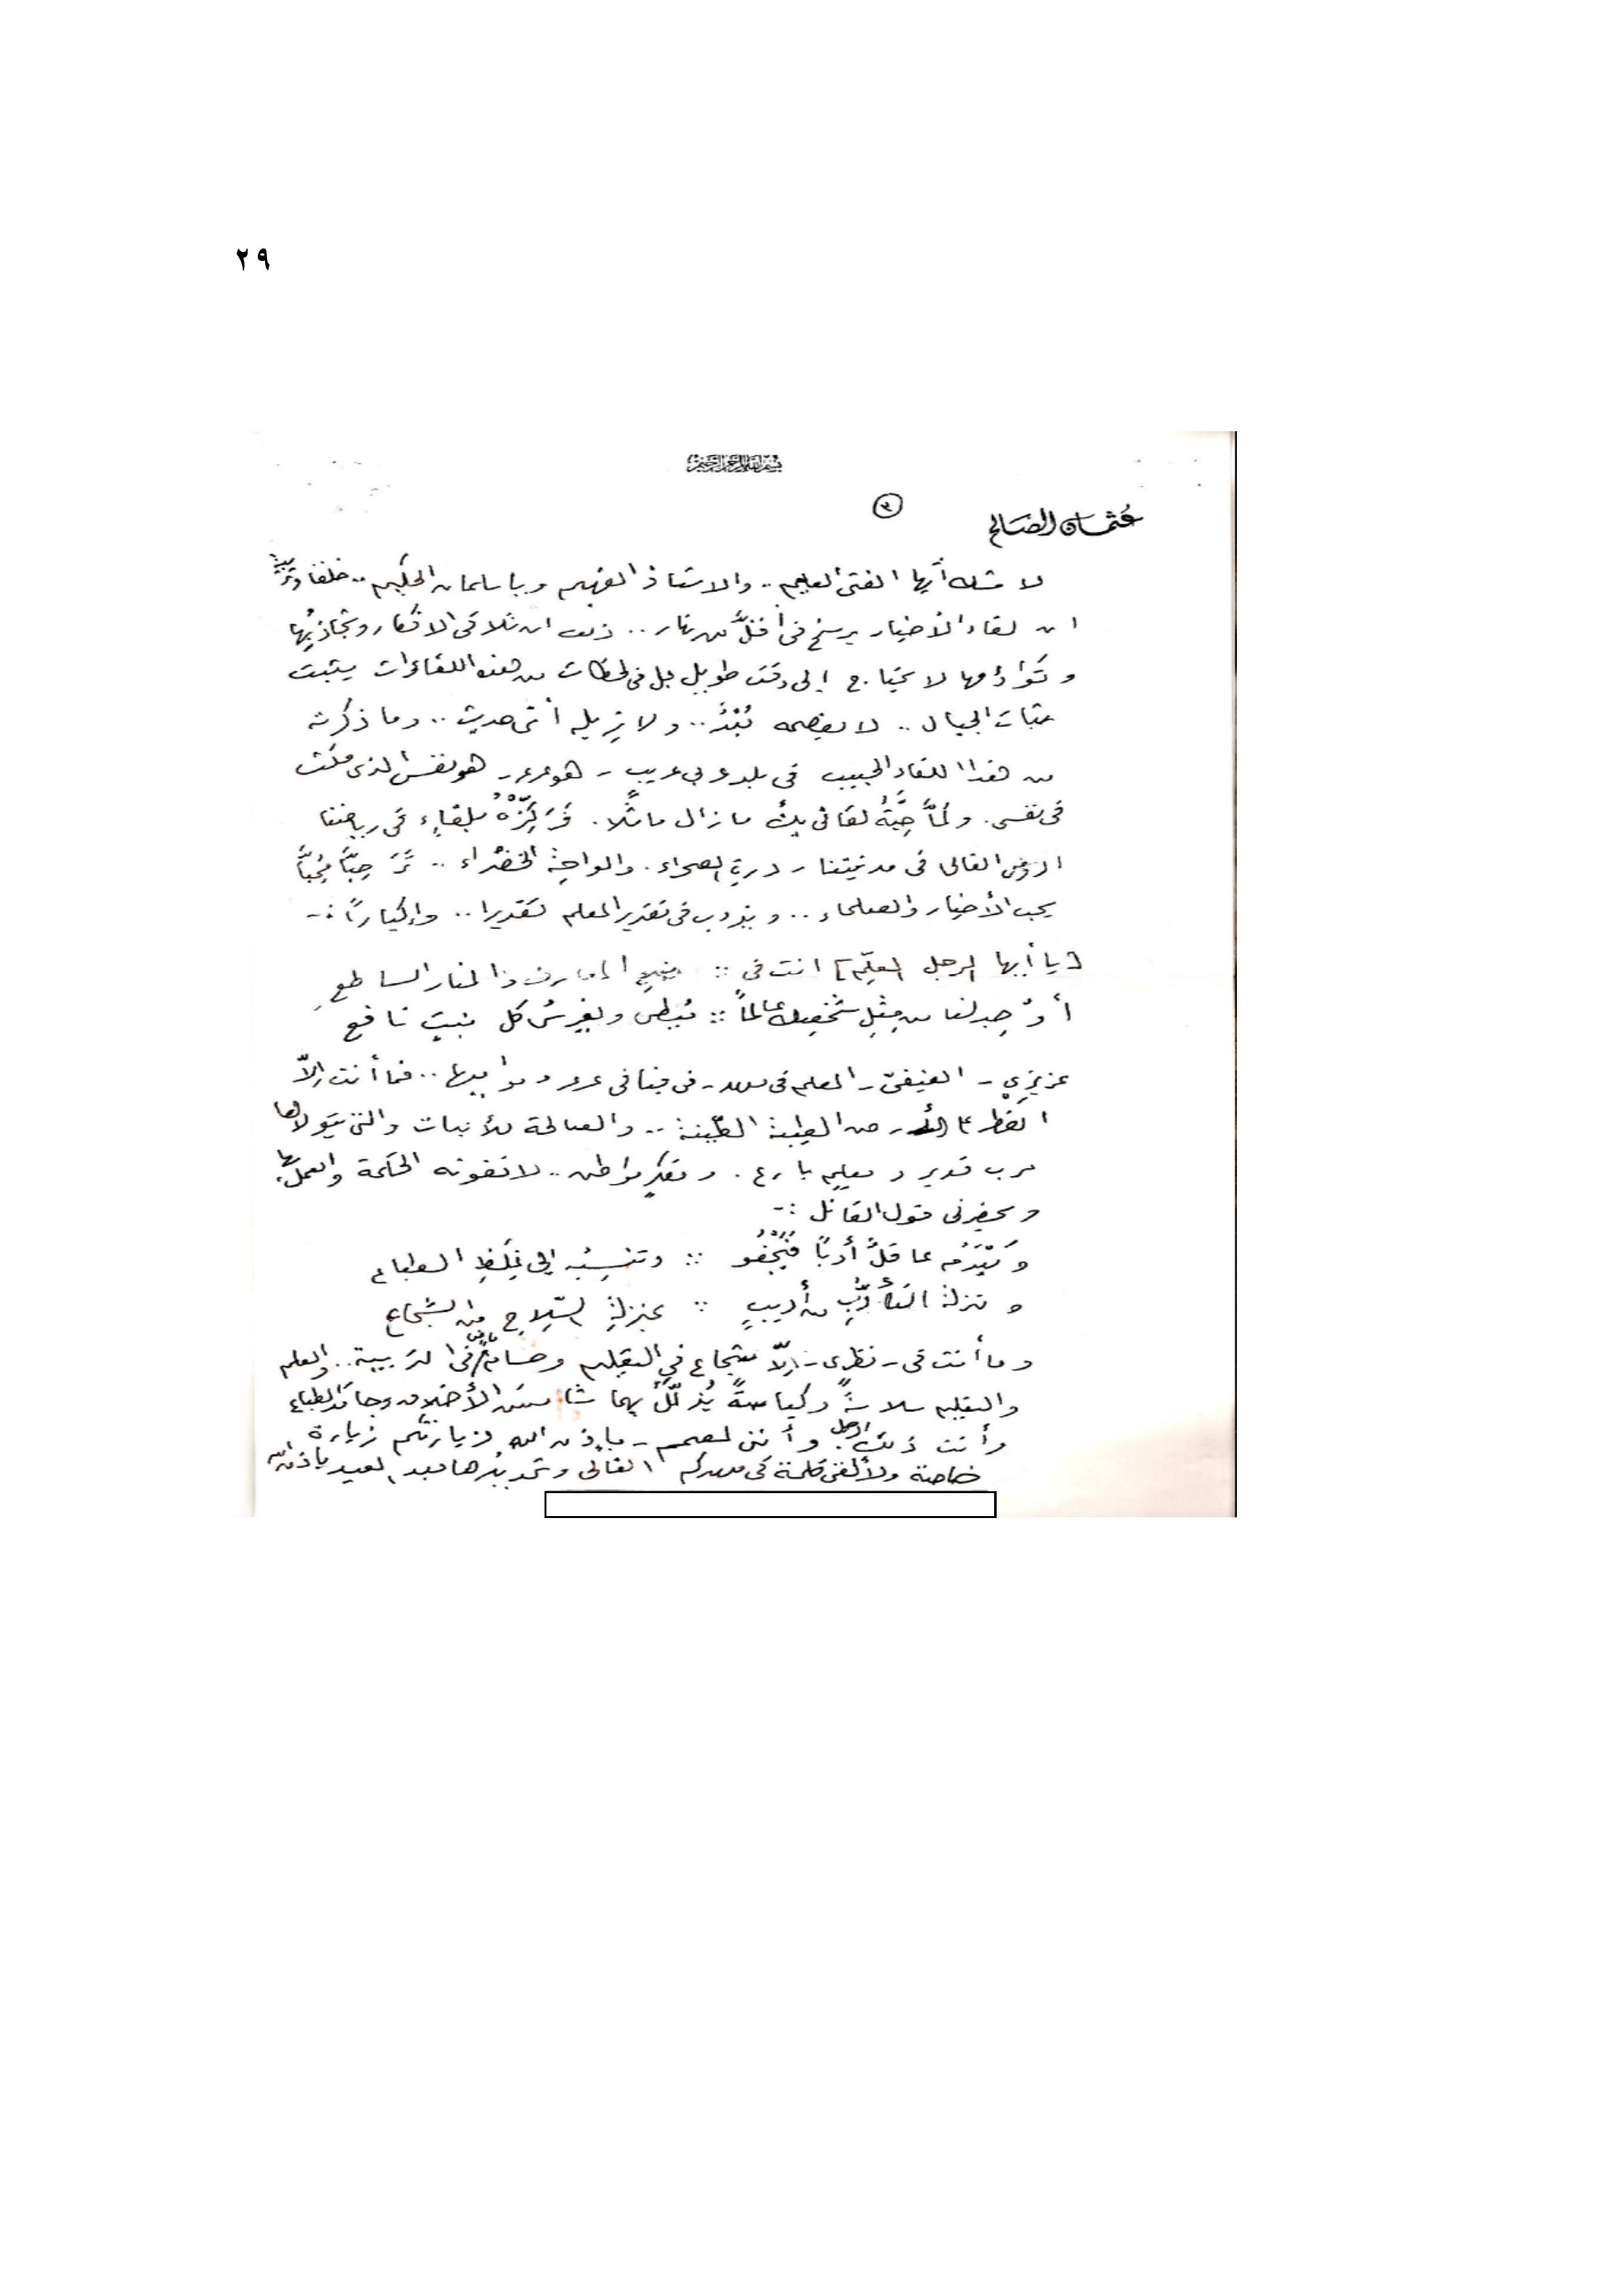 ٢٩
بسم الله الرحمن الرحيم
عثمان الصالح
٢
لا شك أيها الفتى العليم .. والاستاذ الفهيم ويا سلمان الحكيم .. خلقا
ان لقاء الأخيار يرسخ في أقلَّ من نهار .. ذلك ان تلاقى الافكار وتجاذبُها
وتواؤمها لا يحتاج إلى وقت طويل بل في لحظات من هذه اللقاءات يثبت
ثبات الجبال .. لا يفصمه بُعْدٌ .. ولا يزيله أي حديث .. وما ذكرته
من هذا اللقاء الحبيب في بلد عربي عريب - هو عرعر - هو نفس الذي مكث
في نفسي . لقائي بك ما زال ماثلا . بلقاءٍ في رياضنا
الروض الغالي في مدينتنا - درة الصحراء . والواحة الخضراء .. تَرَ حِبًّا مُحِبًّا
يحب الأخيار والعلماء .. ويذوب في تقدير المعلم تقديرا .. وإكبارًا :-
[ يا أيها الرجل المعلّم ] انت في :: المعارف ذا المنار الساطعِ
أوْجد لنا من مِثلِ شخصِك عالماً :: يُعطي ويغرسُ كل نبتٍ نافعِ
عزيزي - العنيفيّ - المعلم في معهد - في فيافي عرعر وبواديها .. فما أنت إلاّ
القطر من الطيبة الطيّبة .. والصالحة للأنبات والتي يتولاها
مرب قدير ومعلمٍ بارع . ومفكرٍ مواطن .. لا تفوته الحكمة والعمل بها
ويحضرني قول القائل :-
عاقلٌ أدبًا فيُجْفُو :: وتنسِبُه إلى غِلَظِ الطباع
ومنزلة التأدّبِ من أديبٍ :: بمنزلةِ السّلاحِ من الشجاع
وما أنت في - نظرى - إلاّ شجاع في التعليم وحسامٌ ماضٍ في التربية .. والعلم
والتعليم سلاسةً وكياسةً يُذلّلُ بهما شامسَ الأخلاق وجامد الطباع
وأنت ذلك الرجل وأنني لمصمم - بإذن الله لزيارتكم زيارة
خاصة ولألقى كلمة في معهدكم الغالي وتحديدها بعد العيد بإذن الله